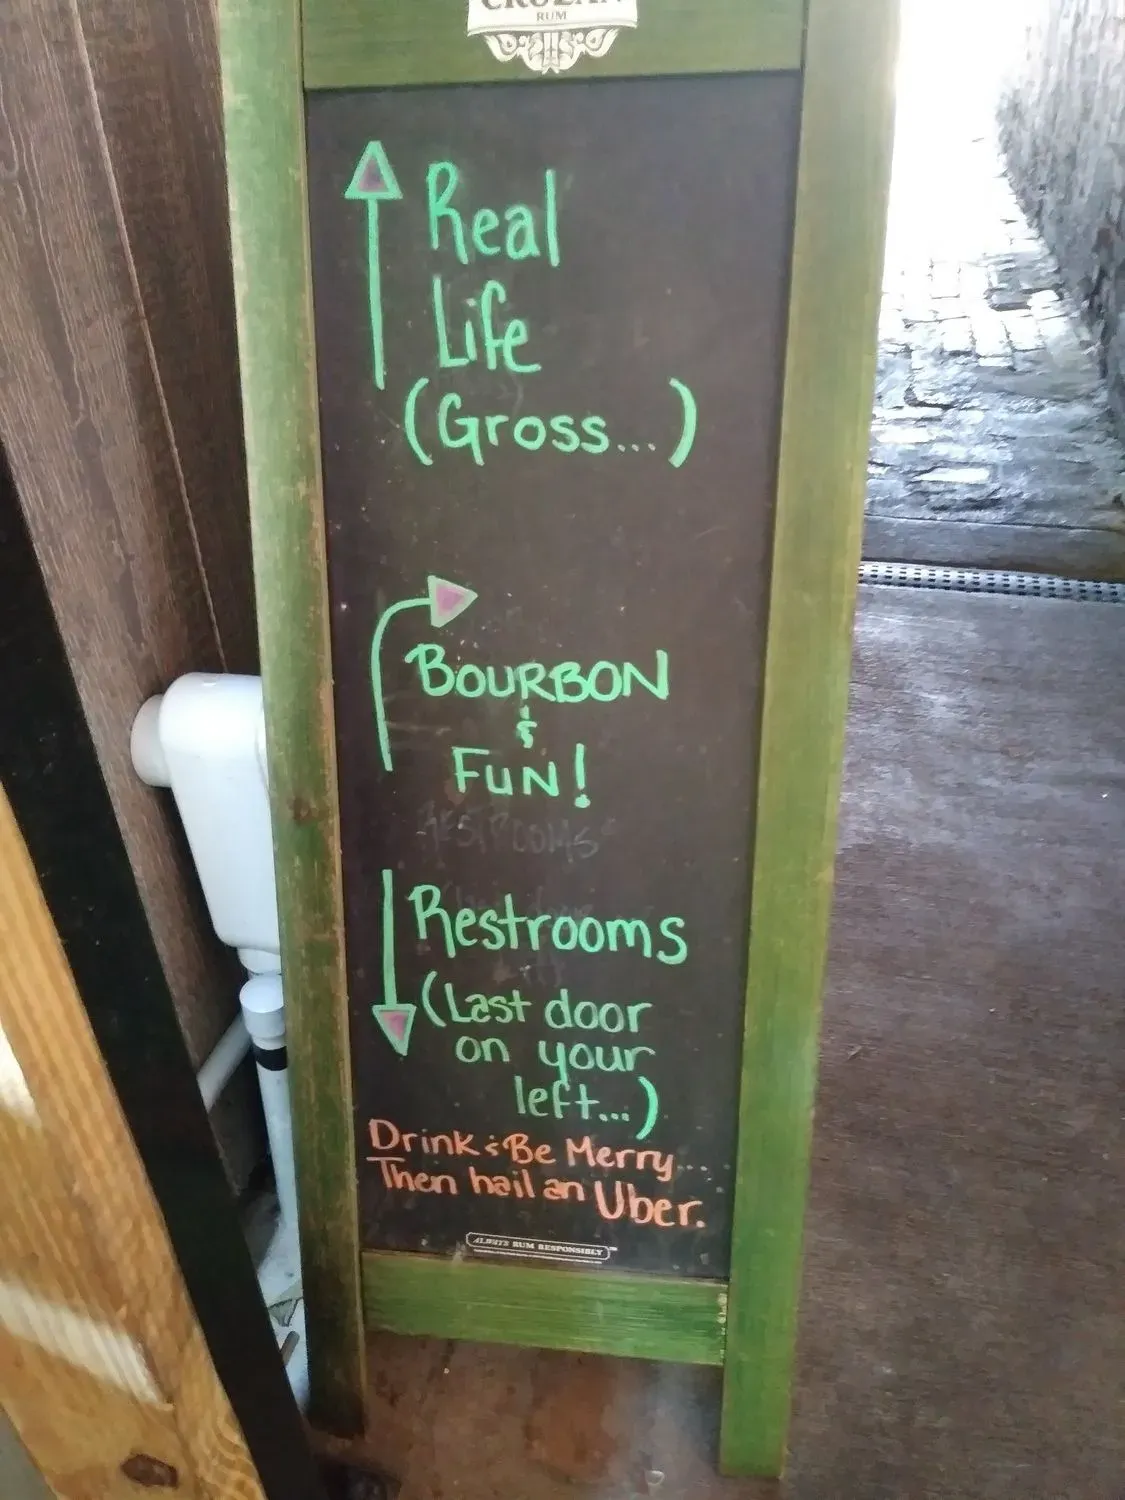 CRUZAN
RUM
Real
Life
(Gross...)
BOURBON
&
FUN!
RESTROOMS
Restrooms
(Last door
on your
left...)
Drink & Be Merry...
Then hail an Uber.
ALWAYS RUM RESPONSIBLY